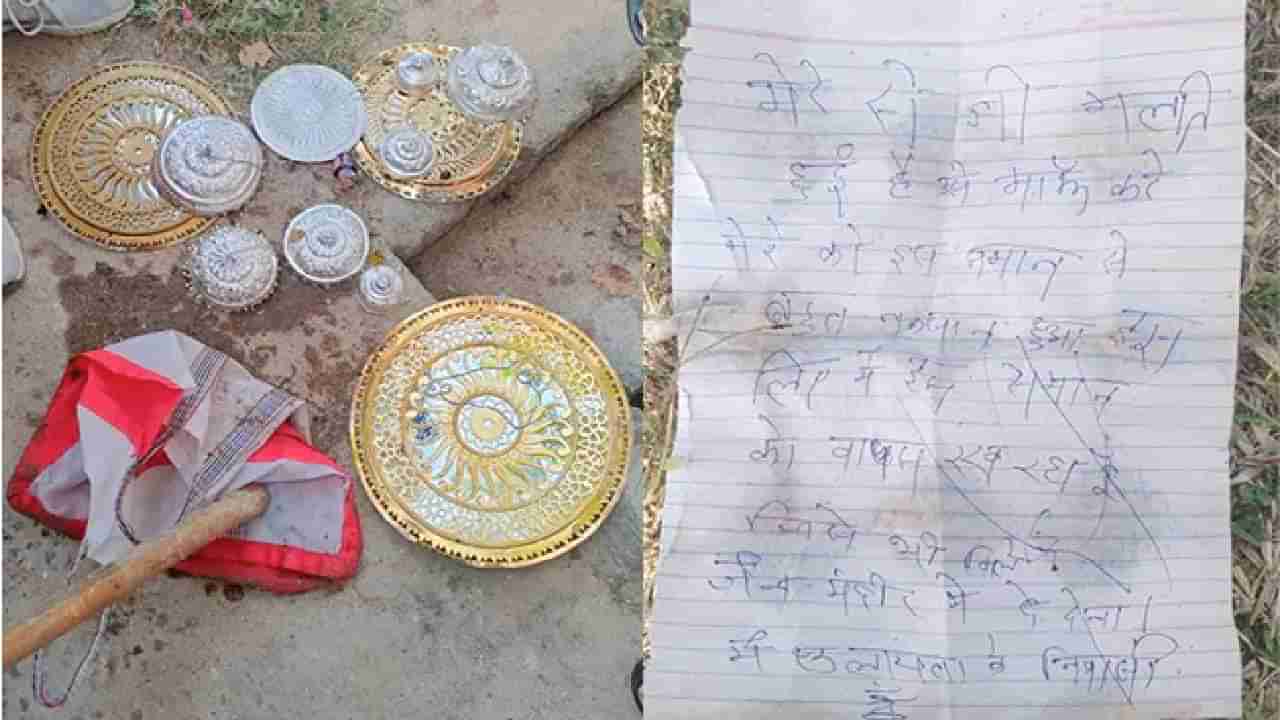 मेरे से जो गलती
हुई है मुझे माफ करे
मेरे को इस समान से
बहुत नुकसान हुआ इस
लिए में इस समान
को वापस रख रहा हूँ
जिसे भी मिले
जैन मंदीर मे दे देना।